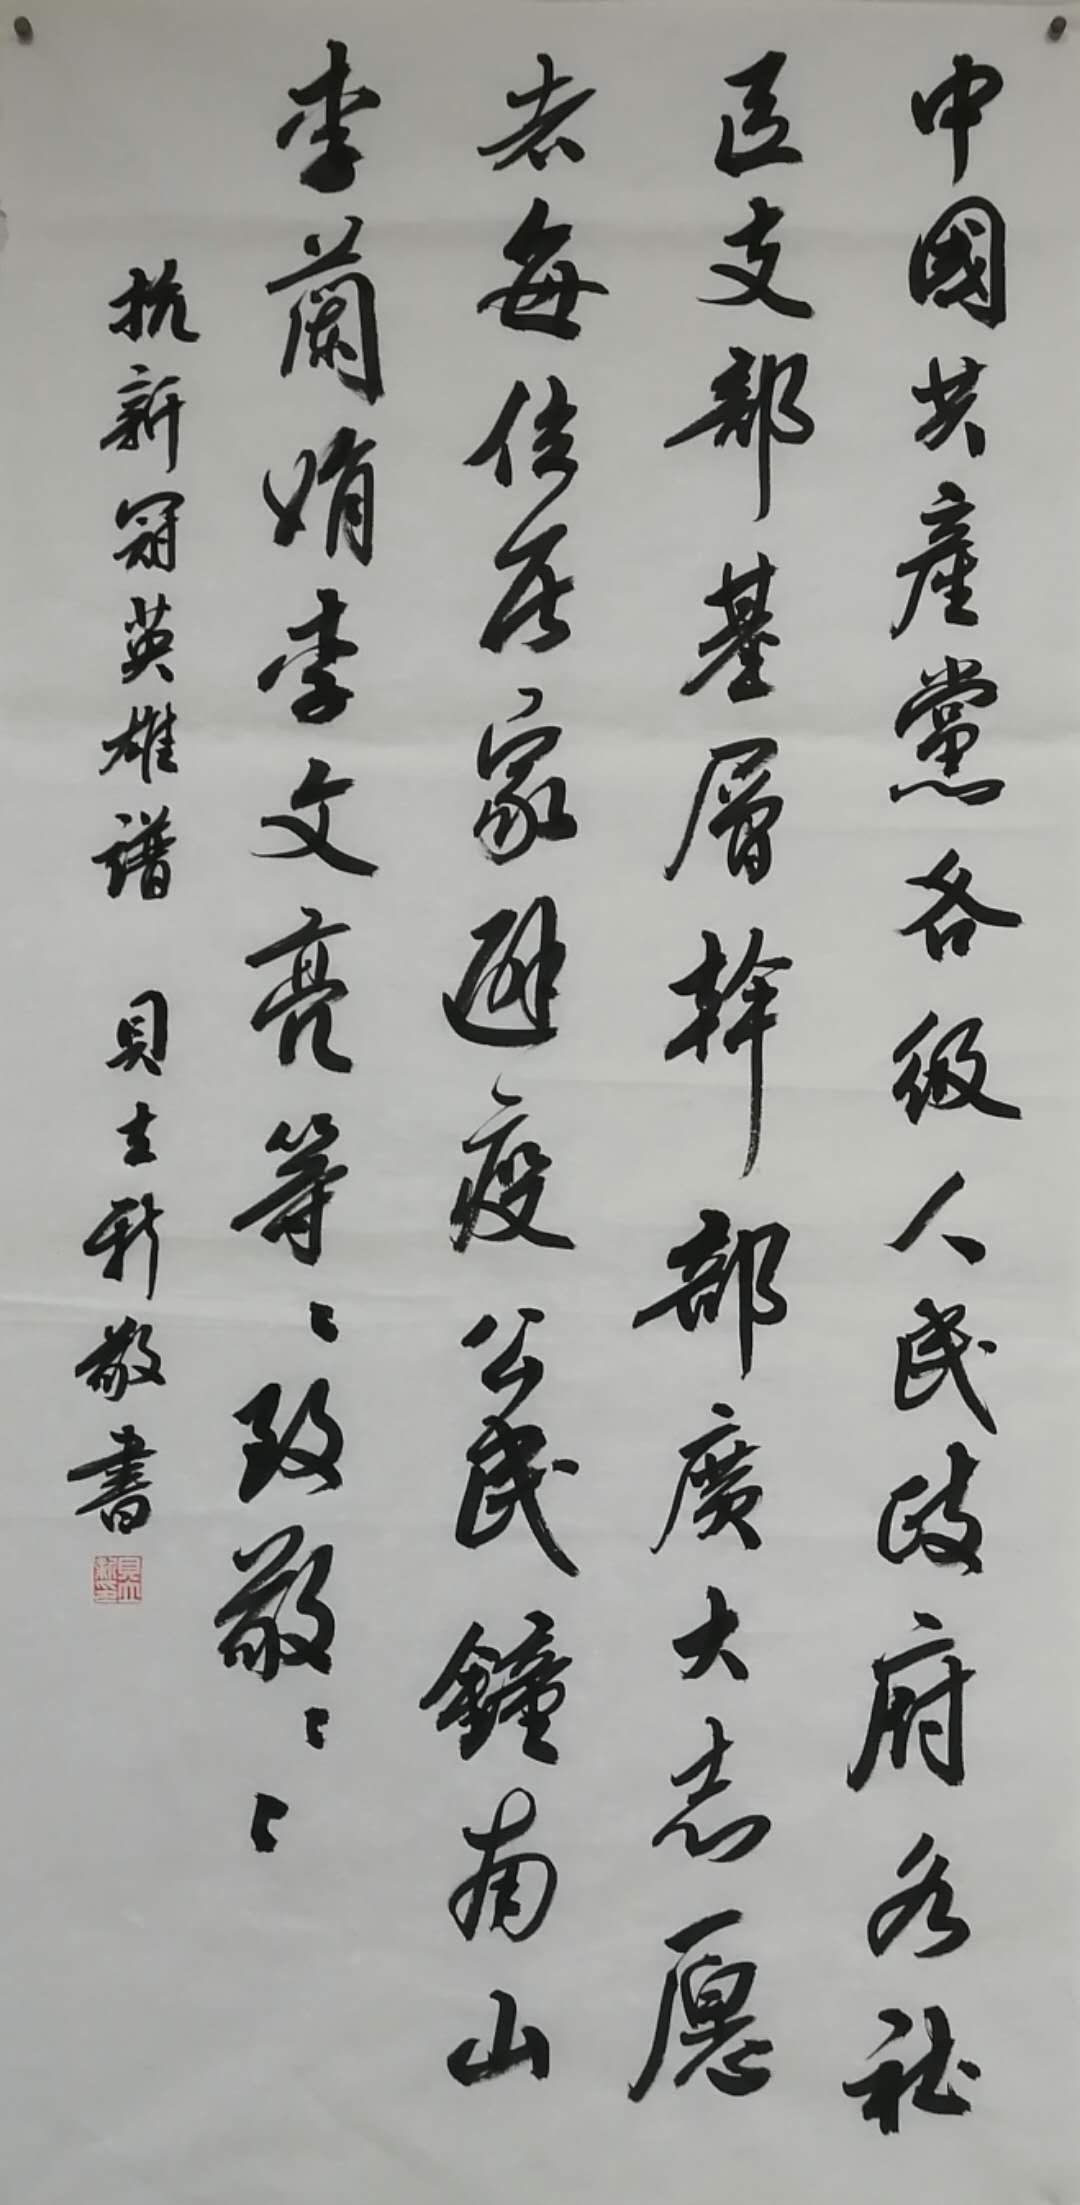 中國共產黨各级人民政府各社
區支部基層幹部廣大志愿
者每位居家避疫公民鐘南山
李蘭娟李文亮等〻致敬〻〻
抗新冠英雄譜 貝立新敬書